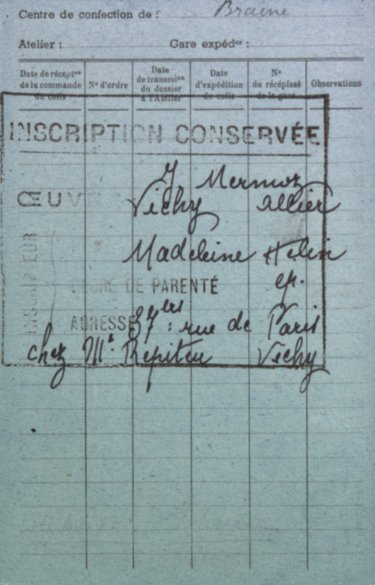 Centre de confection de : Braine
Atelier : Gare expédre :
Date de récepton de la commande du colis
N° d'ordre
Date de transmion du dossier à l'Atelier
Date d'expédition du colis
N° du récépissé de la gare
Observations
INSCRIPTION CONSERVÉE
J Mermoz
ŒUVRE Vichy Allier
Madeleine Helin
DEGRÉ DE PARENTÉ ep.
ADRESSE : 37 bis rue de Paris
chez Mr Repiteu Vichy